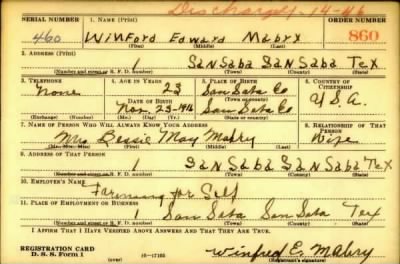 Discharged 14-46
SERIAL NUMBER 1. Name (Print) ORDER NUMBER
460 Winford Edward Mabry 860
(First) (Middle) (Last)
2. Address (Print)
1 San Saba San Saba Tex
(Number and street or R. F. D. number) (Town) (County) (State)
3. Telephone 4. Age in Years 5. Place of Birth 6. Country of Citizenship
None 23 San Saba Co U.S.A.
Date of Birth (Town or county)
Nov 23-1916 San Saba Co
(Exchange) (Number) (Mo.) (Day) (Yr.) (State or country)
7. Name of Person Who Will Always Know Your Address 8. Relationship of That Person
Mrs Bessie May Mabry Wife
(Mr., Mrs., Miss) (First) (Middle) (Last)
9. Address of That Person
San Saba San Saba Tex
(Number and street or R. F. D. number) (Town) (County) (State)
10. Employer's Name
Farming for Self
11. Place of Employment or Business
1 San Saba San Saba Tex
(Number and street or R. F. D. number) (Town) (County) (State)
I Affirm That I Have Verified Above Answers and That They Are True.
REGISTRATION CARD
D. S. S. Form 1 16-17105 Winfred E. Mabry
(Registrant's signature)